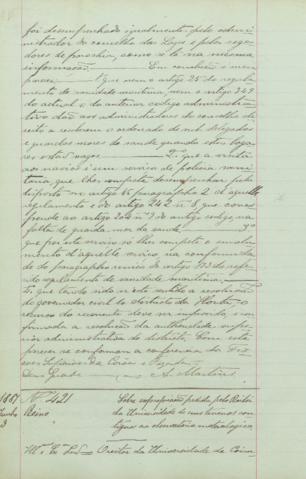 foi desempenhado igualmente pelo admi-
nistrador do concelho das Lages e pelos rege-
dores de parochia, como se lê na mesma
informação. Em conclusão é meu
parecer 1º que nem o artigo 25 do regula-
mento de sanidade maritima, nem o artigo 249
do actual e do anterior codigo administra-
tivo dão aos administradores do concelho di-
reito a receberem o ordenado de
e guardas móres de saude quando estes loga-
res estão vagos 2º que a visita
aos navios é um serviço de policia sani-
taria, que lhes compete desempenhar pelo
disposto no artigo 65 paragrapho 2 d'aquelle
regulamento e do artigo 242 nº 8, que corres-
ponde ao artigo 204 nº 9 do antigo codigo, na
falta de guarda mór da saude 3º
que por esta visita só lhes compete o emolu-
mento d'aquelle serviço, na conformidade
do paragrapho unico do artigo do refe-
rido regulamento de sanidade maritima 4º
que tendo sido n'este sentido a resolução
do governador civil do districto da Horta, o
recurso do recorrente deve ser improvido e con-
firmada a resolução da auctoridade supe-
rior administrativa do districto. Com este
parecer se conformou a conferencia dos Fis-
caes Superiores da Corôa e Fazenda
Deus Guarde A. Martins
1887 Nº 421
Junho Reino
3
Sobre pedida pelo Reitor
da Universidade de
Illmo e Exmo Snr Director da Universidade de Coim